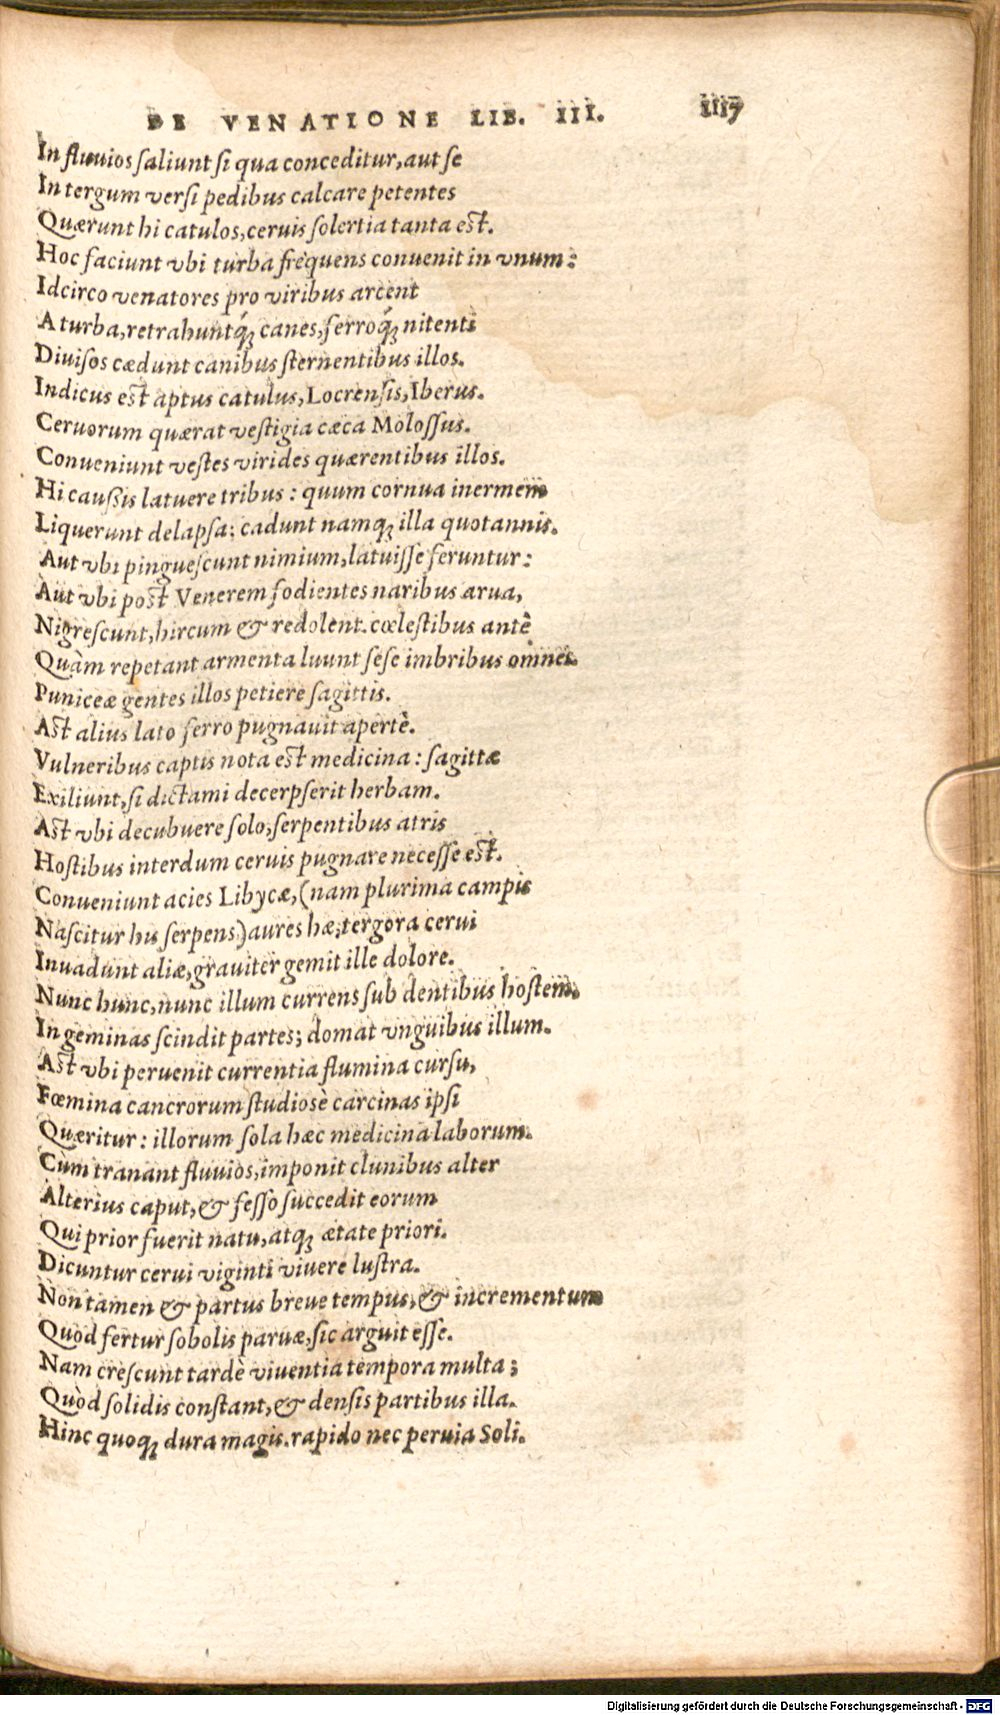 DE VENATIONE LIB. III. 117
In fluuios saliunt si qua conceditur, aut se
In tergum versi pedibus calcare petentes
Quærunt hi catulos, ceruis solertia tanta est.
Hoc faciunt vbi turba frequens conuenit in vnum:
Idcirco venatores pro viribus arcent
A turba, retrahuntq́; canes, ferroq́; nitenti
Diuisos cædunt canibus sternentibus illos.
Indicus est aptus catulus, Locrensis, Iberus.
Ceruorum quærat vestigia cæca Molossus.
Conueniunt vestes virides quærentibus illos.
Hi caußis latuere tribus: quum cornua inermem
Liquerunt delapsa: cadunt namq; illa quotannis.
Aut vbi pinguescunt nimium, latuisse feruntur:
Aut vbi post Venerem fodientes naribus arua,
Nigrescunt, hircum & redolent. cœlestibus antè
Quàm repetant armenta luunt sese imbribus omnes.
Puniceæ gentes illos petiere sagittis.
Ast alius lato ferro pugnauit apertè.
Vulneribus captis nota est medicina: sagittæ
Exiliunt, si dictami decerpserit herbam.
Ast vbi decubuere solo, serpentibus atris
Hostibus interdum ceruis pugnare necesse est.
Conueniunt acies Libycæ, (nam plurima campis
Nascitur his serpens) aures hæ, tergora cerui
Inuadunt aliæ, grauiter gemit ille dolore.
Nunc hunc, nunc illum currens sub dentibus hostem,
In geminas scindit partes; domat vnguibus illum.
Ast vbi peruenit currentia flumina cursu,
Fœmina cancrorum studiosè carcinas ipsi
Quæritur: illorum sola hæc medicina laborum.
Cùm tranant fluuios, imponit clunibus alter
Alterius caput, & fesso succedit eorum
Qui prior fuerit natu, atq; ætate priori.
Dicuntur cerui viginti viuere lustra.
Non tamen & partus breue tempus, & incrementum
Quod fertur sobolis paruæ, sic arguit esse.
Nam crescunt tardè viuentia tempora multa;
Quòd solidis constant, & densis partibus illa.
Hinc quoq; dura magis. rapido nec peruia Soli.
Digitalisierung gefördert durch die Deutsche Forschungsgemeinschaft - DFG